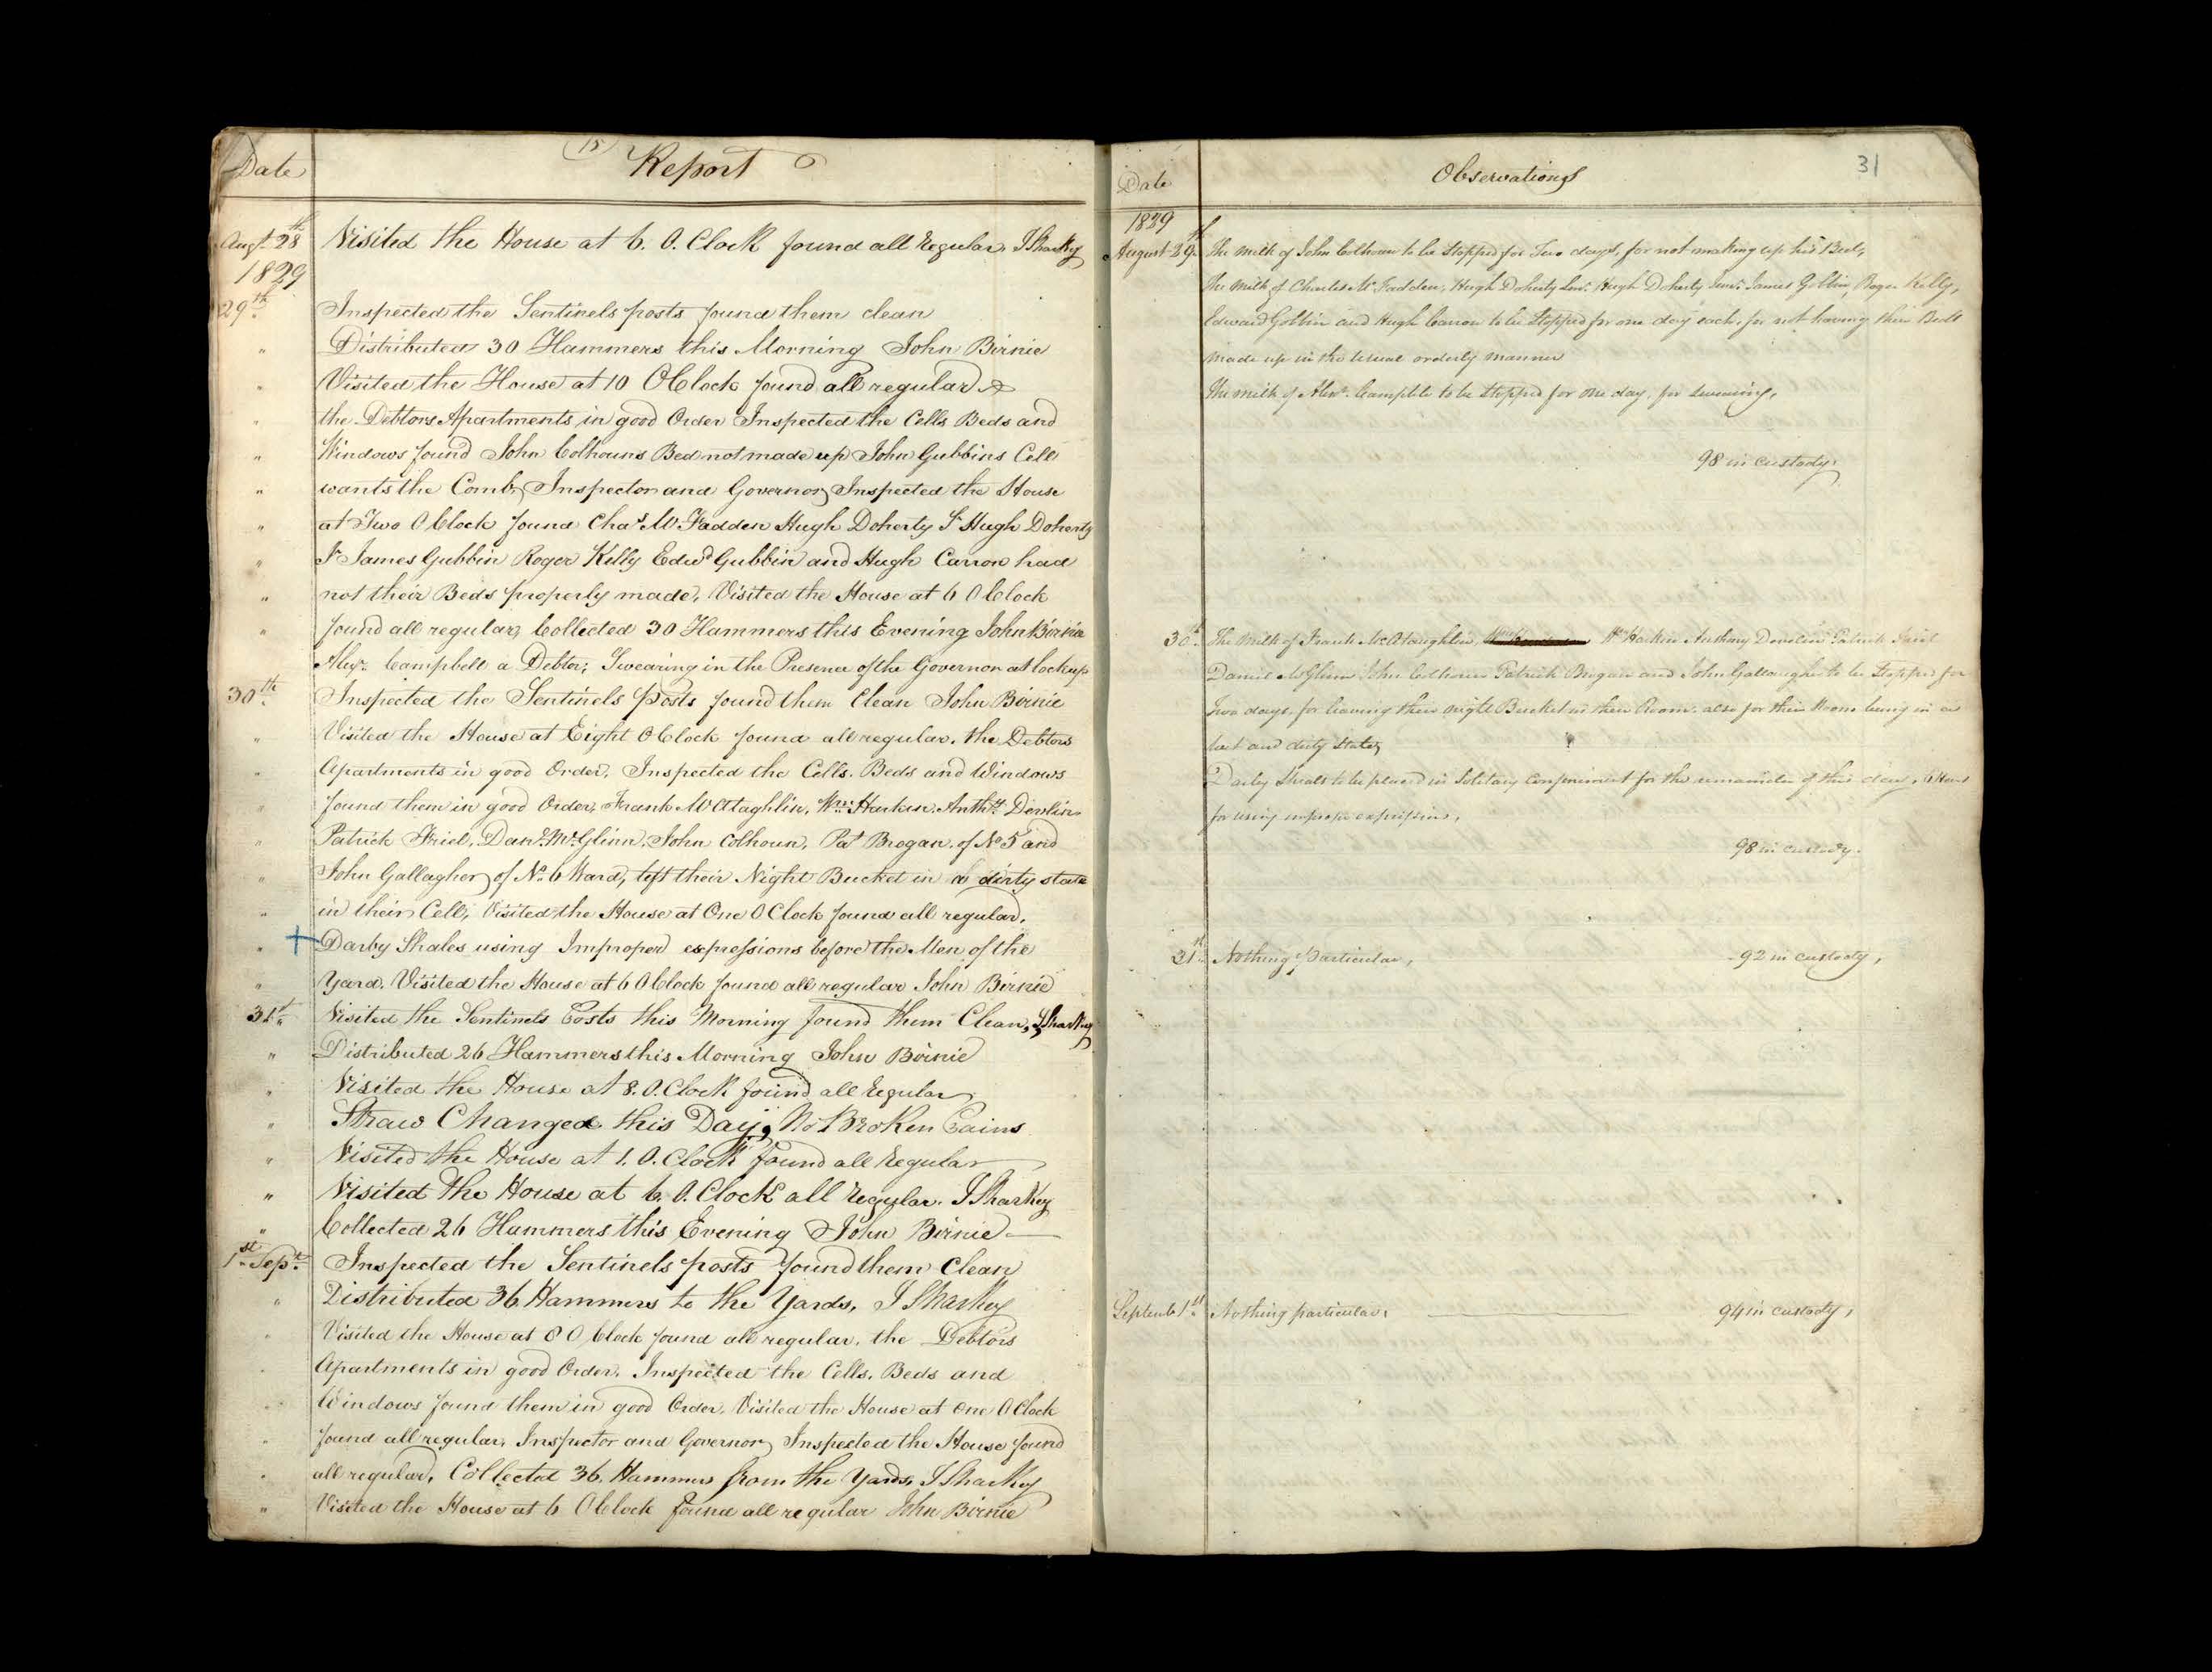 (15)
Date Report
Augt. 28th Visited the House at 6. O. Clock found all Regular, J Sharkey
1829
29th Inspected the Sentinels posts found them clean
" Distributed 30 Hammers this Morning John Birnie
" Visited the House at 10 OClock found all regular &
" the Debtors Apartments in good Order Inspected the Cells Beds and
" Windows found John Colhouns Bed not made up John Gubbins Cell
" wants the Comb, Inspector and Governor Inspected the House
" at Two OClock found Chas McFadden Hugh Doherty Sr Hugh Doherty
" Jr James Gubbin Roger Kelly Edwd Gubbin and Hugh Carron had
" not their Beds properly made, Visited the House at 6 OClock
" found all regular, Collected 30 Hammers this Evening John Birnie
Alexr. Campbell a Debtor; Swearing in the Presence of the Governor at lockup
30th Inspected the Sentinels Posts found them Clean John Birnie
" Visited the House at Eight OClock found all regular. the Debtors
" Apartments in good Order, Inspected the Cells. Beds and Windows
" found them in good Order, Frank McClaghlin, Wm Harkin. Anthy Devlin
" Patrick Friel, Danl. McGlinn, John Colhoun, Pat Brogan. of No 5 and
" John Gallagher of No. 6 Ward, left their Night Bucket in a dirty state
" in their Cell, Visited the House at One OClock found all regular.
" + Darby Shales using Improper expressions before the Men of the
" Yard. Visited the House at 6 OClock found all regular John Birnie
31st Visited the Sentinels Posts this Morning found them Clean, J Sharkey
" Distributed 26 Hammers this Morning John Birnie
" Visited the House at 8. O. Clock found all Regular
" Straw Changed this Day, No Broken Pains
" Visited the House at 1. O. Clock found all Regular
" Visited the House at 6. O. Clock all Regular. J Sharkey
" Collected 26 Hammers this Evening John Birnie
1st Sept. Inspected the Sentinels posts found them Clean
" Distributed 36 Hammers to the Yards, J Sharkey
" Visited the House at 8 OClock found all regular, the Debtors
Apartments in good Order. Inspected the Cells. Beds and
Windows found them in good Order, Visited the House at One OClock
found all regular, Inspector and Governor Inspected the House found
all regular, Collected 36. Hammers from the Yards, J Sharkey
" Visited the House at 6 OClock found all regular John Birnie
Date Observations 31
1829
August 29th The milk of John Colhoun to be Stopped for Two days, for not making up his Bed,
The Milk of Charles McFadden, Hugh Doherty Senr. Hugh Doherty Junr. James Gobbin, Roger Kelly,
Edward Gobbin and Hugh Carron to be Stopped for one day each, for not having their Beds
made up in the usual orderly manner
The Milk of Alexr. Campble to be Stopped for one day, for Swearing,
98 in custody,
30th. The Milk of Frank McClaughlin, Wm Harkin Anthony Devlin Patrick Friel
Daniel McGlinn John Colhoun Patrick Brogan and John Gallaugher to be Stopped for
Two days, for leaving their night Bucket in their Room. also for their Room being in a
and dirty state,
Darby Sheals to be placed in Solitary Confinement for the remainder of this day, 6 Hours
for using improper expressions,
98 in custody.
31st. Nothing Particular, 92 in custody,
Septembr 1st. Nothing particular, 94 in custody,